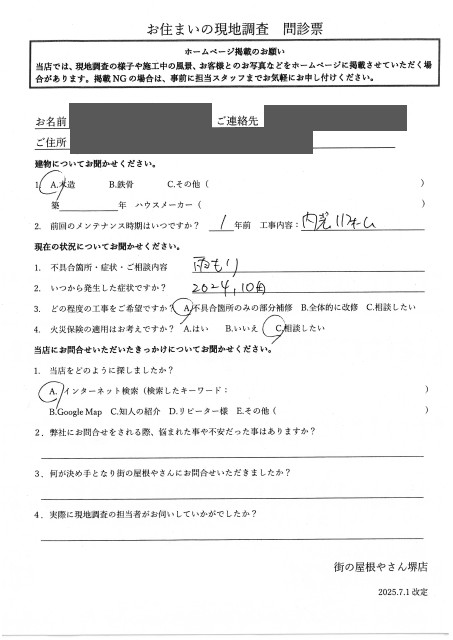 お住まいの現地調査 問診票
ホームページ掲載のお願い
当店では、現地調査の様子や施工中の風景、お客様とのお写真などをホームページに掲載させていただく場
合があります。掲載 NG の場合は、事前に担当スタッフまでお気軽にお申し付けください。
お名前 ご連絡先
ご住所
建物についてお聞かせください。
1. A.木造 B.鉄骨 C.その他（ ）
築 年 ハウスメーカー（ ）
2. 前回のメンテナンス時期はいつですか？ 1 年前 工事内容: 内装リフォーム
現在の状況についてお聞かせください。
1. 不具合箇所・症状・ご相談内容 雨もり
2. いつから発生した症状ですか？ 2024,10月
3. どの程度の工事をご希望ですか？ A.不具合箇所のみの部分補修 B.全体的に改修 C.相談したい
4. 火災保険の適用はお考えですか？ A.はい B.いいえ C.相談したい
当店にお問合せいただいたきっかけについてお聞かせください。
1. 当店をどのように探しましたか？
A. インターネット検索（検索したキーワード： ）
B.Google Map C.知人の紹介 D.リピーター様 E.その他（ ）
2．弊社にお問合せをされる際、悩まれた事や不安だった事はありますか？
3．何が決め手となり街の屋根やさんにお問合せいただきましたか？
4．実際に現地調査の担当者がお伺いしていかがでしたか？
街の屋根やさん堺店
2025.7.1 改定